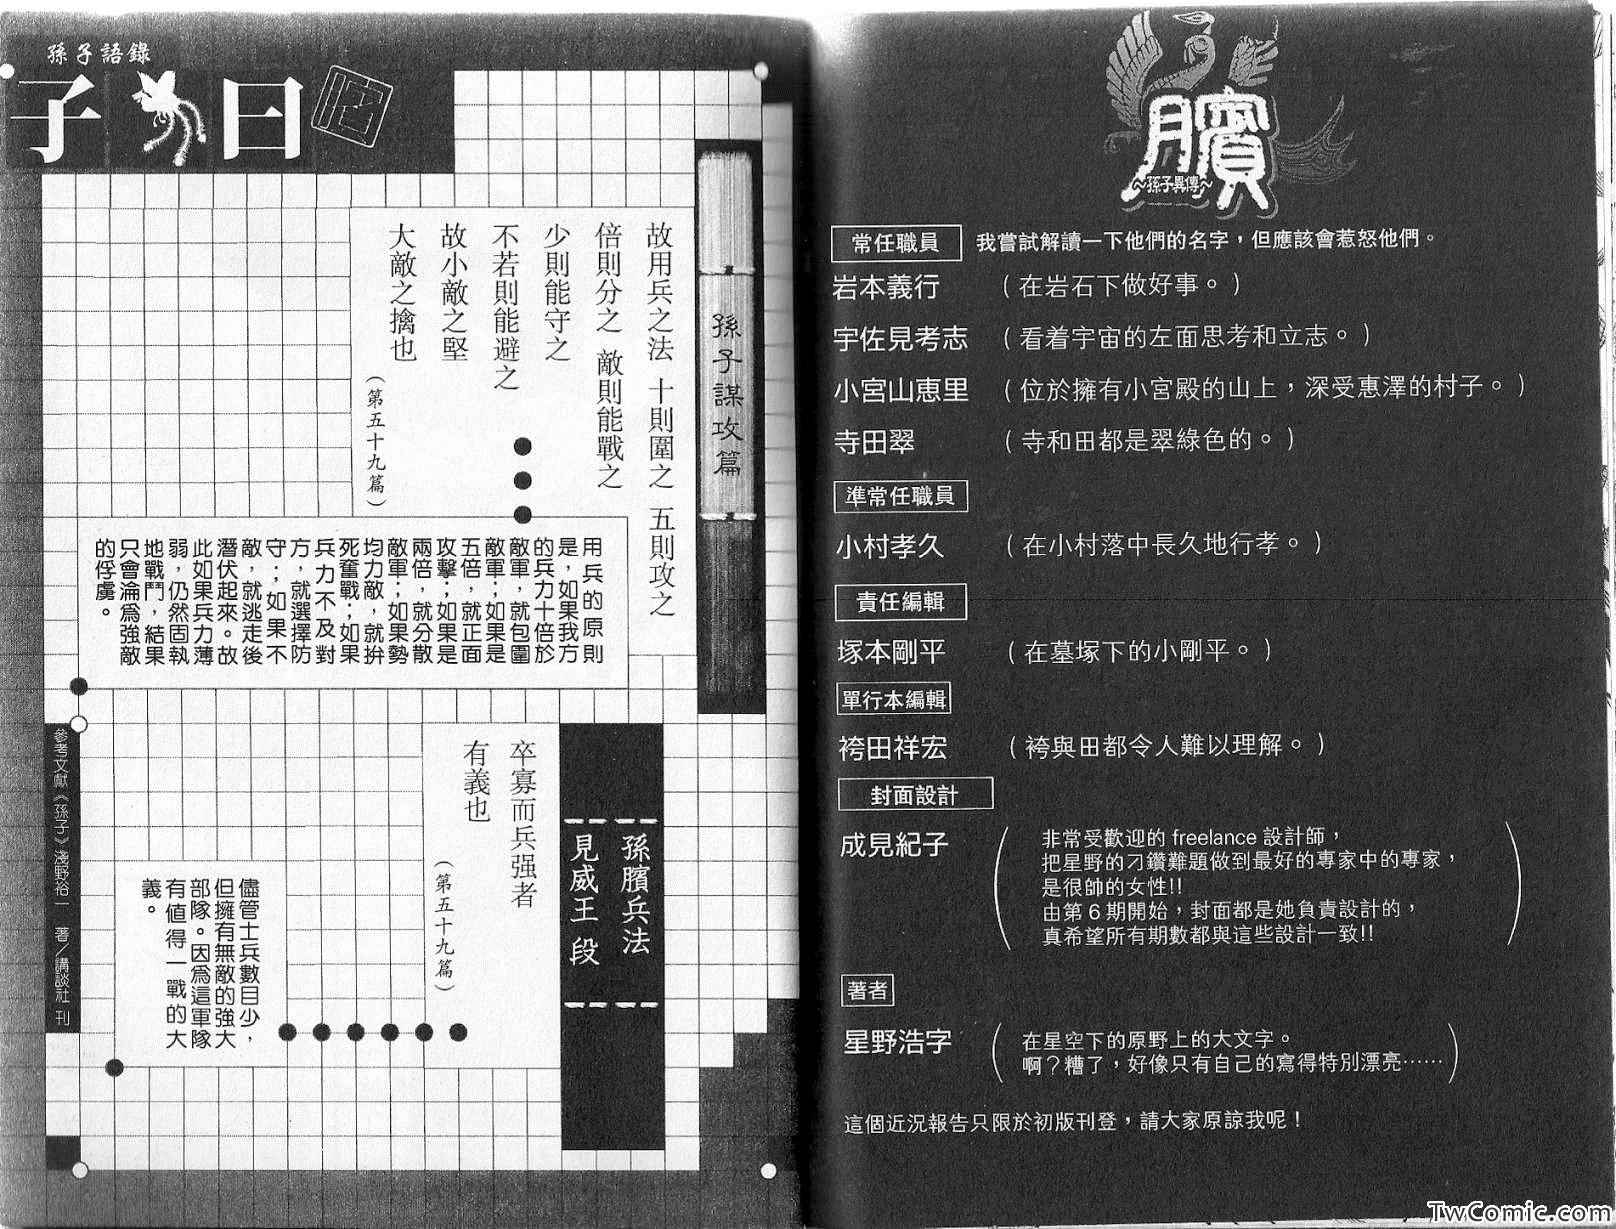 臏
～孫子異傳～
常任職員　我嘗試解讀一下他們的名字，但應該會惹怒他們。
岩本義行　（在岩石下做好事。）
宇佐見考志　（看着宇宙的左面思考和立志。）
小宮山惠里　（位於擁有小宮殿的山上，深受惠澤的村子。）
寺田翠　（寺和田都是翠綠色的。）
準常任職員
小村孝久　（在小村落中長久地行孝。）
責任編輯
塚本剛平　（在墓塚下的小剛平。）
單行本編輯
袴田祥宏　（袴與田都令人難以理解。）
封面設計
成見紀子
（非常受歡迎的 freelance 設計師，
把星野的刁鑽難題做到最好的專家中的專家，
是很帥的女性!!
由第 6 期開始，封面都是她負責設計的，
真希望所有期數都與這些設計一致!!）
著者
星野浩字
（在星空下的原野上的大文字。
啊？糟了，好像只有自己的寫得特別漂亮……）
這個近況報告只限於初版刊登，請大家原諒我呢！
孫子語錄
子曰
孫子謀攻篇
故用兵之法 十則圍之 五則攻之
倍則分之 敵則能戰之
少則能守之
不若則能避之
故小敵之堅
大敵之擒也
（第五十九篇）
用兵的原則
是，如果我方
的兵力十倍於
敵軍，就包圍
敵軍；如果是
五倍，就正面
攻擊；如果是
兩倍，就分散
敵軍；如果勢
均力敵，就拚
死奮戰；如果
兵力不及對
方，就選擇防
守；如果不
敵，就逃走後
潛伏起來。故
此如果兵力薄
弱，仍然固執
地戰鬥，結果
只會淪為強敵
的俘虜。
孫臏兵法
見威王 段
卒寡而兵强者
有義也
（第五十九篇）
儘管士兵數目少，
但擁有無敵的強大
部隊。因為這軍隊
有值得一戰的大
義。
參考文獻《孫子》淺野裕一 著／講談社 刊
TwComic.com